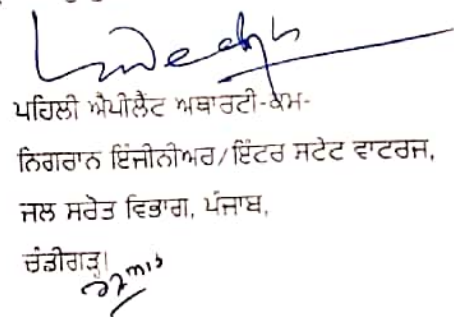 ਪਹਿਲੀ ਐਪੀਲੈਟ ਅਥਾਰਟੀ-ਕਮ-
ਨਿਗਰਾਨ ਇੰਜੀਨੀਅਰ/ਇੰਟਰ ਸਟੇਟ ਵਾਟਰਜ,
ਜਲ ਸਰੋਤ ਵਿਭਾਗ, ਪੰਜਾਬ,
ਚੰਡੀਗੜ੍ਹ।